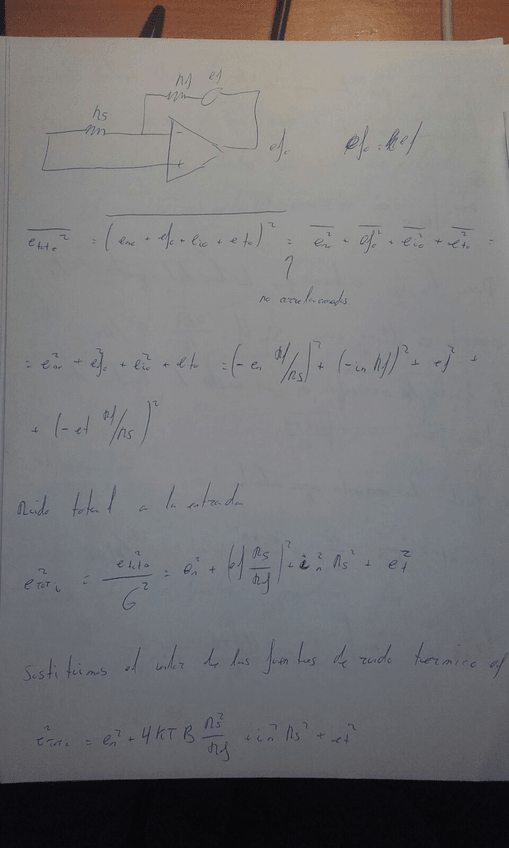 Rs
Rf ef
-
+
efo efo = ef
e_toto² = (eno + efo + eio + eto)² = eno² + efo² + eio² + eto² =
no correlacionados
= eno² + efo² + eio² + eto = (-en Rf/Rs)² + (-in Rf)² + ef² +
+ (-et Rf/Rs)²
Ruido total a la entrada
e_TOTi² = e_toto²/G² = en² + (ef Rs/Rf)² + in² Rs² + et²
Sustituimos el valor de las fuentes de ruido termico ef
e_TOTi² = en² + 4KTB Rs²/Rf + in² Rs² + et²